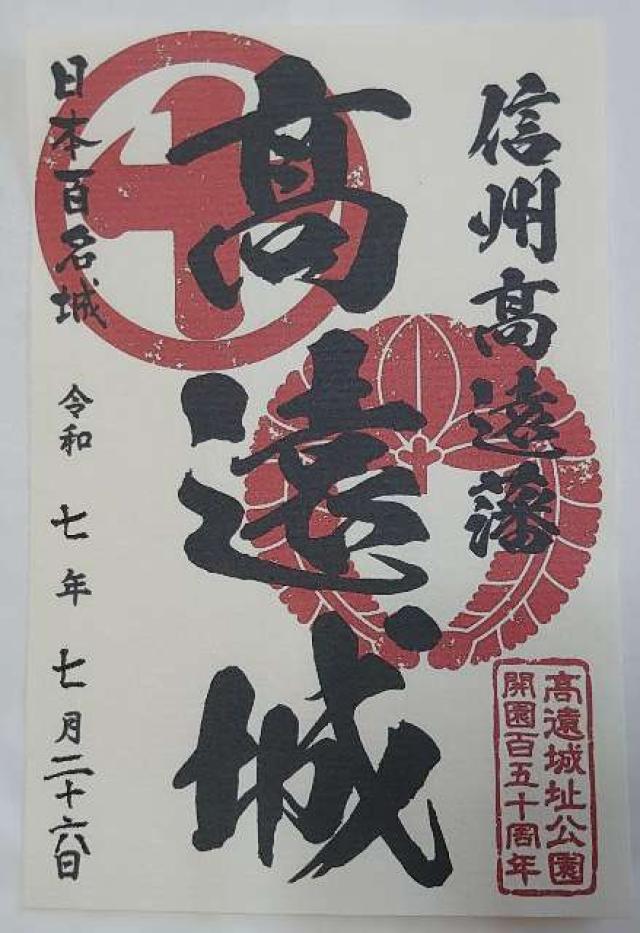 信州髙遠藩
髙遠城
日本百名城 令和 七 年 七月二十六日
高遠城址公園
開園百五十周年